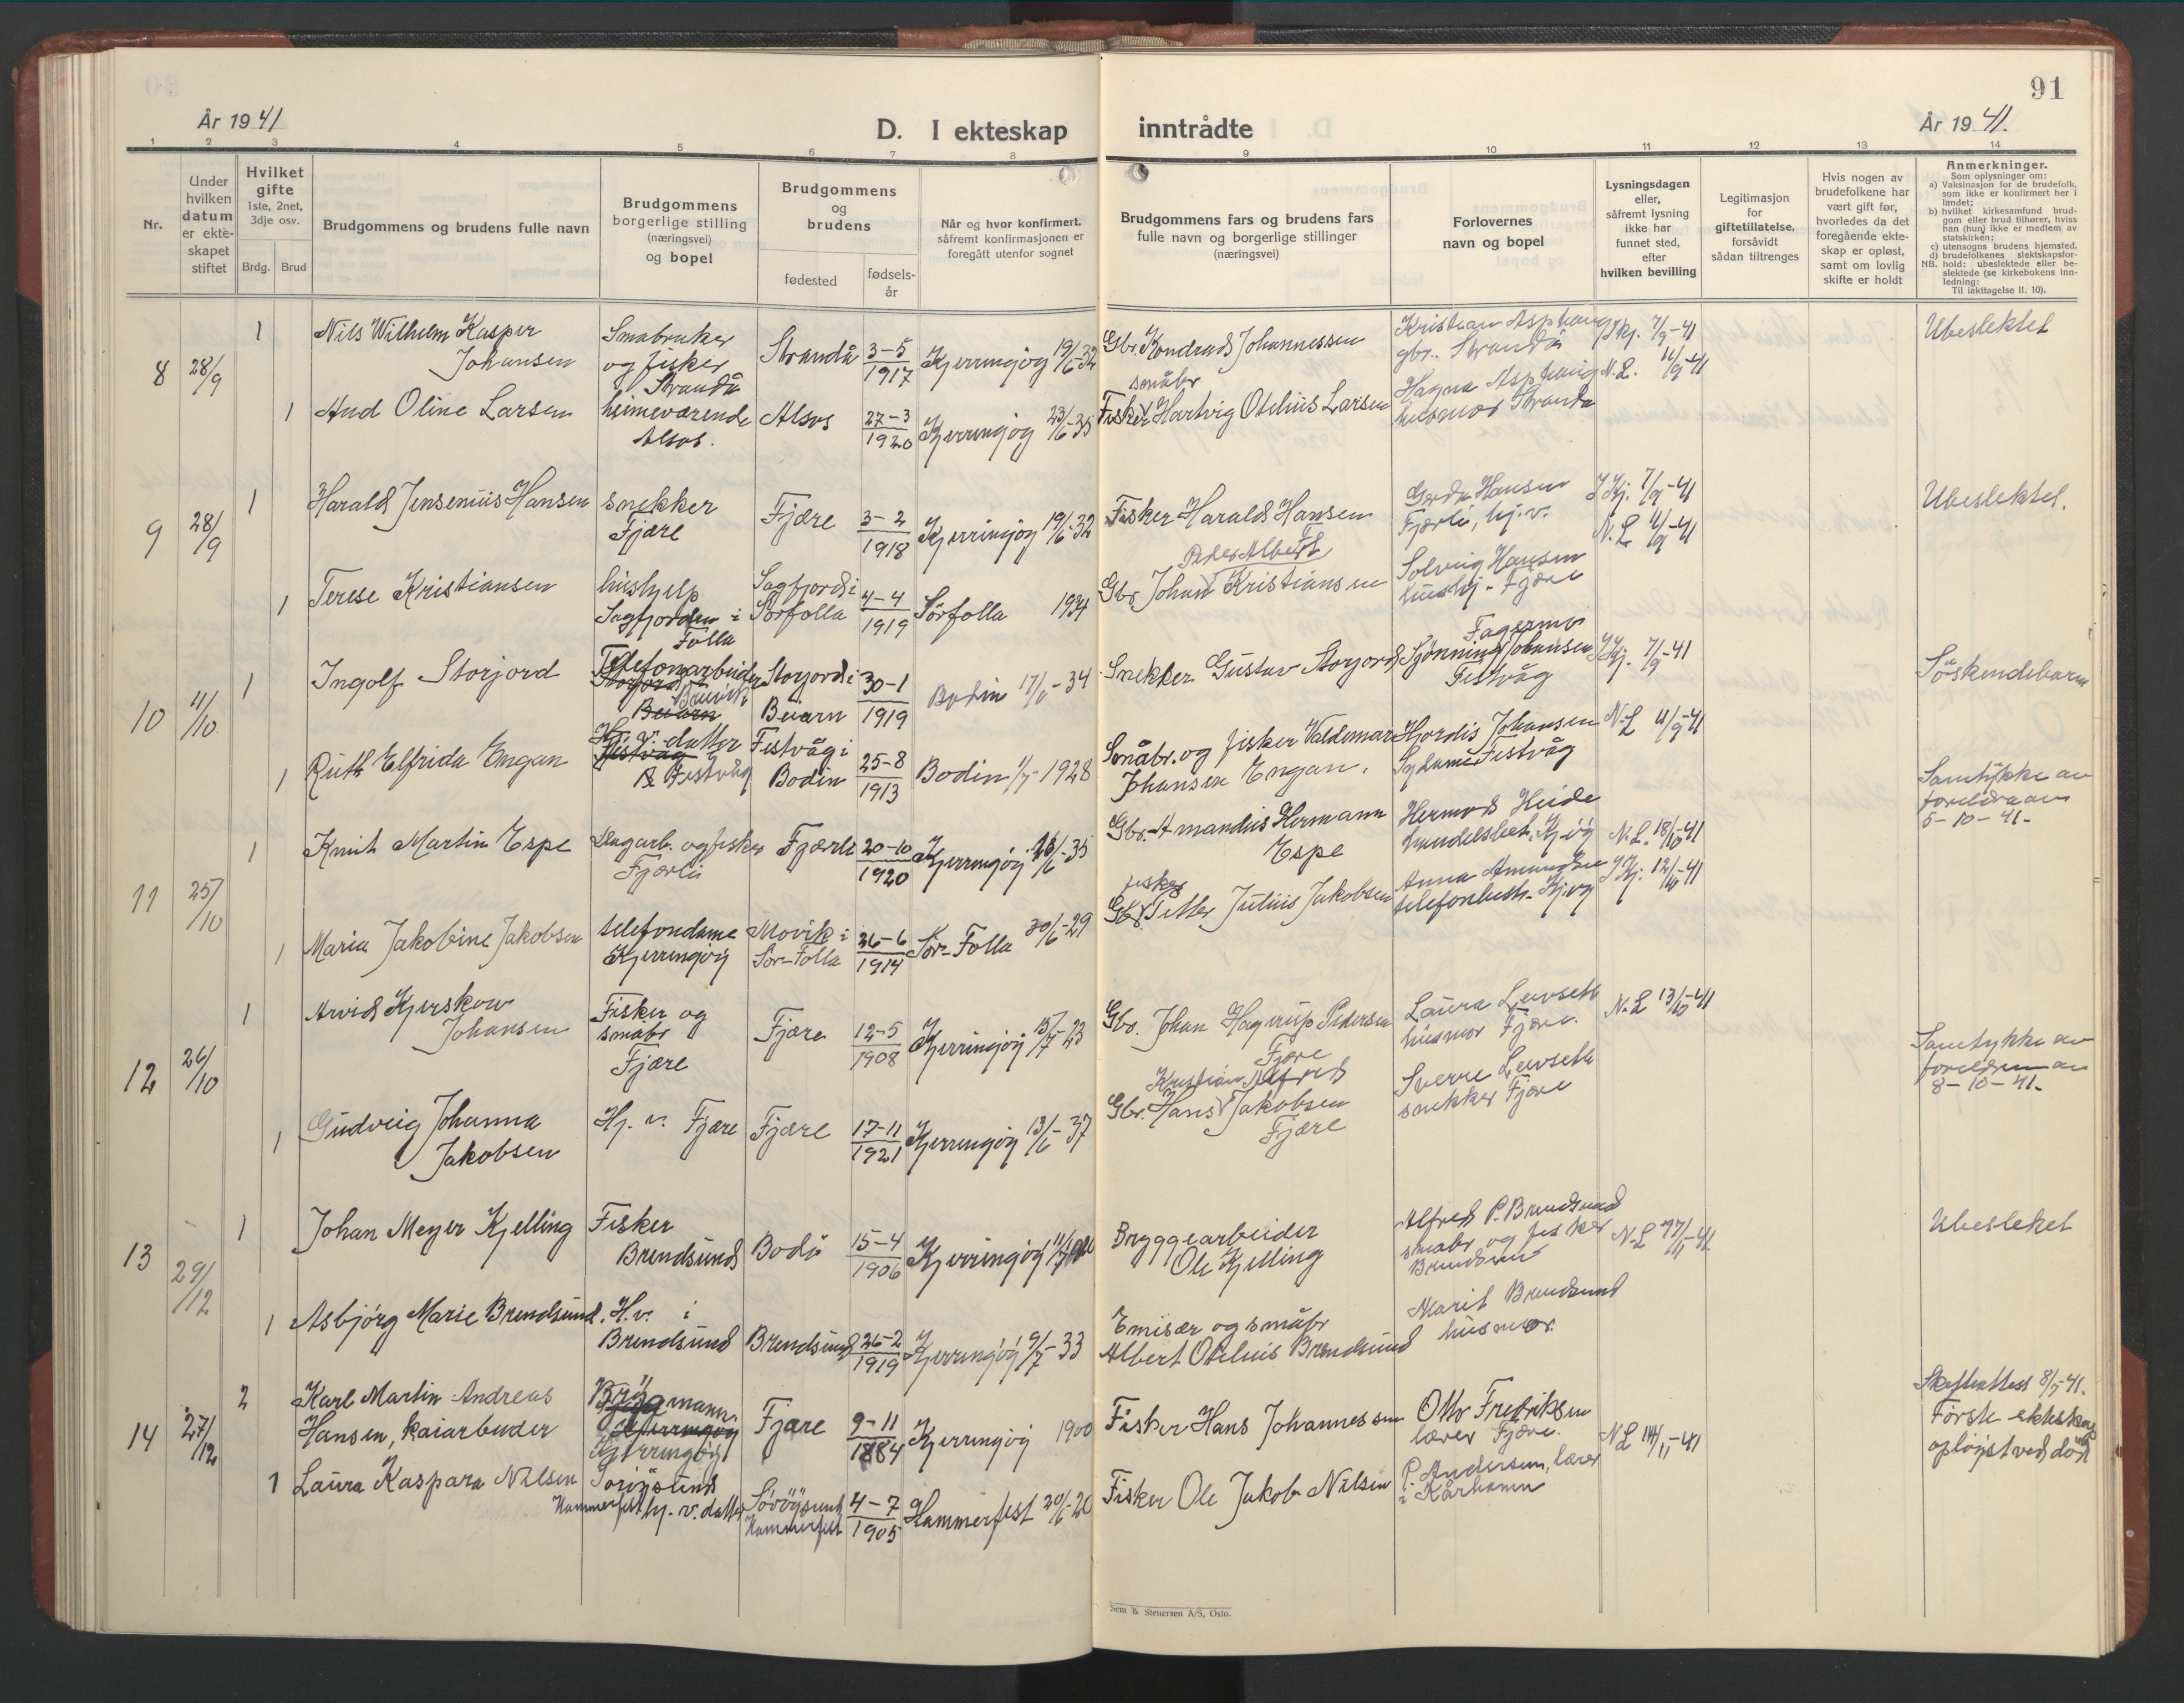 91
År 1941
D. I ekteskap inntrådte
År 1941.
1 2 3 4 5 6 7 8 9 10 11 12 13 14
Nr.
Under
hvilken
datum
er ekte-
skapet
stiftet
Hvilket
gifte
1ste, 2net,
3dje osv.
Brdg. Brud
Brudgommens og brudens fulle navn
Brudgommens
borgerlige stilling
(næringsvei)
og bopel
Brudgommens
og
brudens
fødested
fødsels-
år
Når og hvor konfirmert.
såfremt konfirmasjonen er
foregått utenfor sognet
Brudgommens fars og brudens fars
fulle navn og borgerlige stillinger
(næringsvei)
Forlovernes
navn og bopel
Lysningsdagen
eller,
såfremt lysning
ikke har
funnet sted,
efter
hvilken bevilling
Legitimasjon
for
giftetillatelse,
forsåvidt
sådan tiltrenges
Hvis nogen av
brudefolkene har
vært gift før,
hvorledes da det
foregående ekte-
skap er opløst,
samt om lovlig
skifte er holdt
Anmerkninger.
Som oplysninger om:
a) Vaksinasjon for de brudefolk,
som ikke er konfirmert her i
landet;
b) hvilket kirkesamfund brud-
gom eller brud tilhører, hviss
han (hun) ikke er medlem av
statskirken;
c) utensogns brudens hjemsted.
d) brudefolkenes slektskapsfor-
NB. hold: ubeslektede eller be-
slektede (se kirkebokens inn-
ledning:
Til iakttagelse II. 10).
8 28/9
1 Nils Wilhelm Kasper
Johansen
Småbruker
og fisker
Strandå
Strandå
3-5
1917
Kjerringøy 19/6-32
Gbr. Kondrad Johannessen
Kristian Asphaug
gbr. Strandå
J Kj. 7/9-41
N.L. 11/9-41
Ubeslektet
1 Aud Oline Larsen
heimeværende
Alsos.
Alsos
27-3
1920
Kjerringøy 23/6-35
småbr
Fisker Hartvig Otelius Larsen
Hagna Asphaug
husmor Strandå
9 28/9
1 Harald Jensenius Hansen
snekker
Fjære
Fjære
3-2
1918
Kjerringøy 19/6-32
Fisker Harald Hansen
Gerda Hansen
Fjærli, hj.v.
J Kj. 7/9-41
N.L 11/9-41
Ubeslektet.
1 Terese Kristiansen
hushjelp
Sagfjorden i
Folla
Sagfjord i
Sørfolla
4-4
1919
Sørfolla 1934
Peder Albert
Gbr Johan Kristiansen
Solveig Hansen
hushj - Fjære
10 11/10
1 Ingolf Storjord
Telefonarbeider
Storjord
Beiarn
Storjord i
Beiarn
30-1
1919
Bodin 17/6-34
Snekker Gustav Storjord
Fagermo
Sjønning Johansen
Festvåg
J Kj. 7/9-41
N.L 11/9-41
Søskendebarn
1 Ruth Elfrida Engan
Hj. v. datter
Festvåg
Festvåg
Festvåg i
Bodin
25-8
1913
Bodin 1/7-1928
Småbr. og fisker Valdemar
Johansen Engan.
Hjordis Johansen
Sydame Festvåg
11 25/10
1 Knut Martin Espe
Dagarb. og fisker
Fjærli
Fjærli
20-10
1920
Kjerringøy 23/6-35
Gbr. Amandus Hermann
Espe
Hermod Heide
handelsbet. Kj-øy
N.L. 18/10-41
J Kj. 12/10-41
Samtykke av
foreldra av
5-10-41-
1 Maria Jakobine Jakobsen
telefondame
Kjerringøy
Movik i
Sør-Folla
26-6
1914
Sør-Folla 30/6-29
fisker
Gbr. Petter Julius Jakobsen
Anna Amundsen
telefonbest. Kj.øy
12 26/10
1 Arvid Kjerskow
Johansen
Fisker og
småbr
Fjære
Fjære
12-5
1908
Kjerringøy 15/7-23
Gbr. Johan Hagerup Pedersen
Fjære
Laura Levseth
husmor Fjære.
N.L 13/10-41
Samtykke av
foreldra av
8-10-41-
1 Gudveig Johanna
Jakobsen
Hj. v. Fjære
Fjære
17-11
1921
Kjerringøy 13/6-37
Kristian Alfred
Gbr. Hans Jakobsen
Fjære
Sverre Levseth
snekker Fjære
13 29/12
1 Johan Meyer Kjelling
Fisker
Brendsund
Bodø
15-4
1906
Kjerringøy
Bryggearbeider
Ole Kjelling
Alfred P. Brendsund
småbr og fisker
Brendsund
Ubesleket
1 Asbjørg Marie Brendsund.
H.v. i
Brendsund
Brendsund
26-2
1919
Kjerringøy 9/7-33
Emisær og småbr
Albert Otelius Brendsund
Marit Brendsund
husmor.
14 27/12
2 Karl Martin Andreas
Hansen, kaiarbeider
Kjerringøy
Fjære
9-11
1884
Kjerringøy 1900
Fisker Hans Johannessen
Otto Fredriksen
lærer Fjære.
N L 14/11-41
Skifteattest 8/5-41.
Første ekteskap
opløyst ved død
1 Laura Kaspara Nilsen
Hammerfest hj. v. datter
Sørøysund
Hammerfest
4-7
1905
Hammerfest 20/6-20
Fisker Ole Jakob Nilsen
P. Andersen, lærer
i Kårhamn
Sem & Stenersen A/S, Oslo.